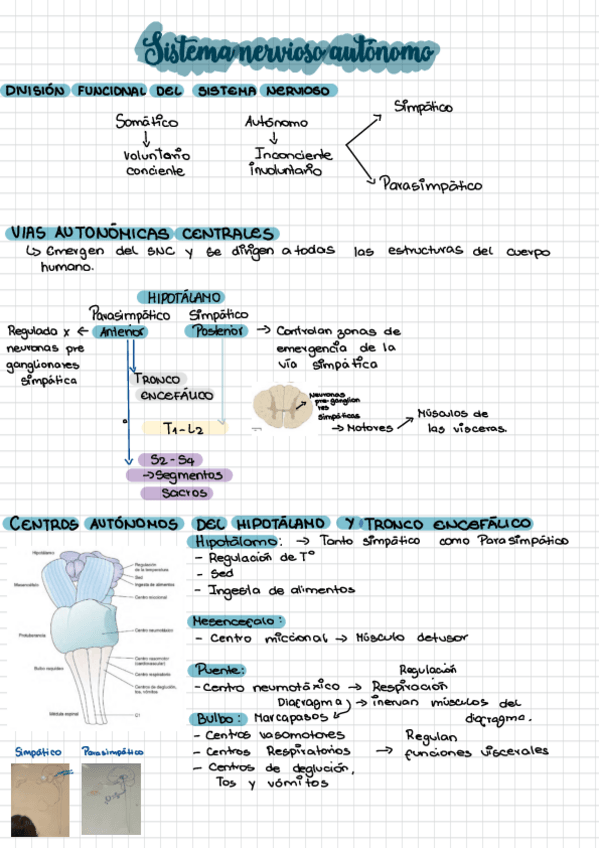 Sistema nervioso autónomo
DIVISIÓN FUNCIONAL DEL SISTEMA NERVIOSO
Somático
Autónomo
Simpático
Voluntario
conciente
Inconciente
involuntario
Parasimpático
VIAS AUTONÓMICAS CENTRALES
↳ Emergen del SNC y se dirigen a todas las estructuras del cuerpo
humano.
HIPOTÁLAMO
Parasimpático Simpático
Regulado x ← Anterior
neuronas pre
ganglionares
simpática
Posterior → Controlan zonas de
emergencia de la
vía simpática
TRONCO
ENCEFÁLICO
Neuronas
pre-ganglion
res
simpáticas
T1-L2
→ Motores
Músculos de
las visceras.
S2-S4
→ Segmentos
sacros
CENTROS AUTÓNOMOS DEL HIPOTÁLAMO Y TRONCO ENCEFÁLICO
Hipotálamo: → Tanto simpático como Parasimpático
- Regulación de T°
- Sed
- Ingesta de alimentos
Hipotálamo
Mesencéfalo
Protuberancia
Bulbo raquídeo
Médula espinal
Regulación
de la temperatura
Sed
Ingesta de alimentos
Centro miccional
Centro neumotáxico
Centro vasomotor
(cardiovascular)
Centro respiratorio
Centros de deglución,
tos, vómitos
C1
Mesencefalo:
- Centro miccional → Músculo detusor
Puente:
Regulación
- Centro neumotáxico → Respiración
Diagragma → inervan músculos del
diagragma.
Bulbo: Marcapasos
- Centros vasomotores
- Centros Respiratorios
- Centros de deglución,
Tos y vómitos
Regulan
→ funciones viscerales
Simpático
Parasimpático